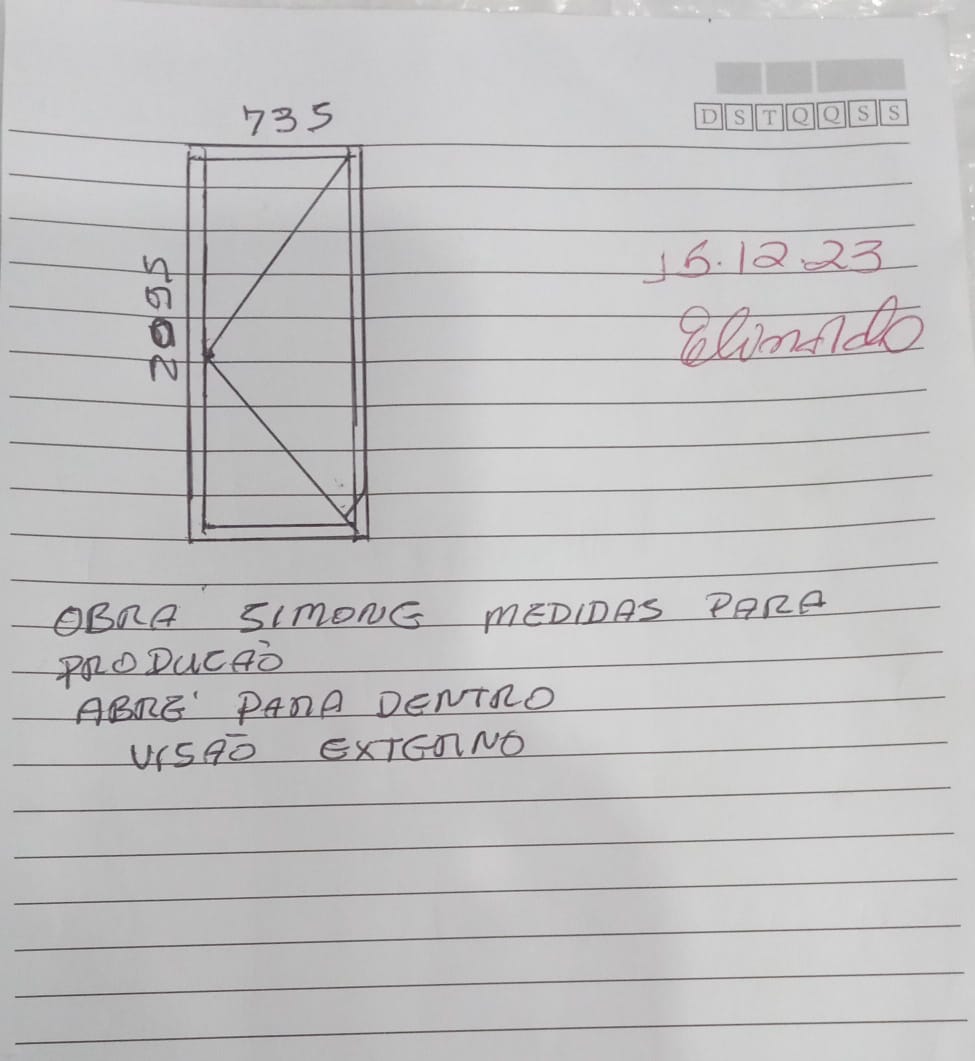 D S T Q Q S S
735
2095
15.12.23
OBRA SIMONE MEDIDAS PARA
PRODUCAÕ
ABRE' PARA DENTRO
VISAÕ EXTERNO